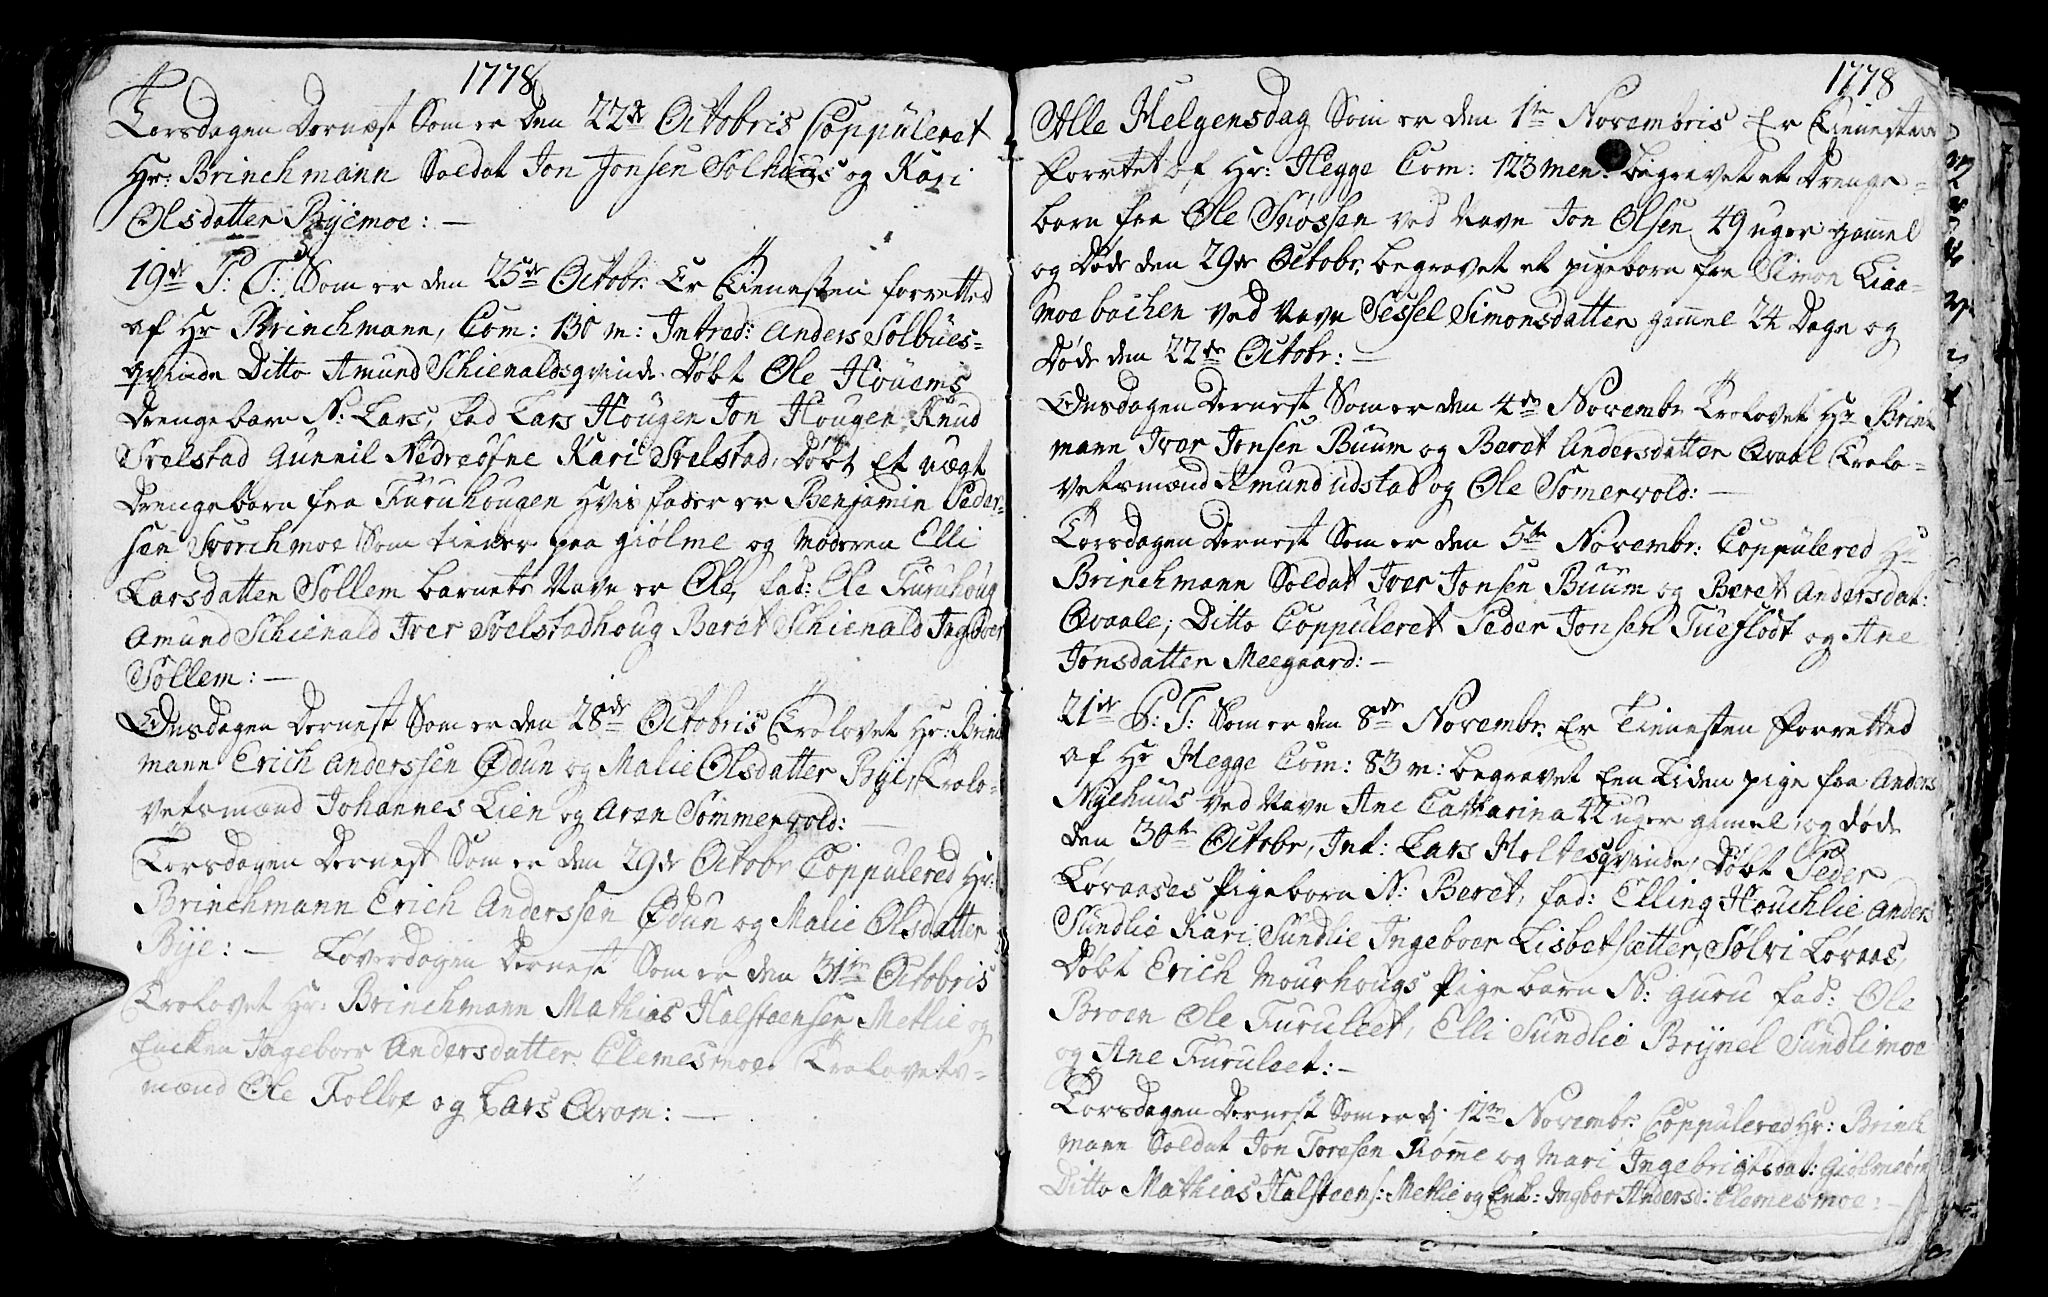 1778
Torsdagen Dernæst Som er den 22de Octobris Coppuleret
Hr: Brinchmann Soldat Jon Jonsen Solhuus og Kari
Olsdatter Byemoe: —
19de P: T: Som er den 25de Octobr. Er Tienesten forretted
af Hr Brinchmann, Com: 130 m: Introd: Anders Solbues-
qvinde Ditto Amund Schienaldsqvinde. Døbt Ole Houems
Drengebarn N: Lars, fad Lars Hougen Jon Hougen Knud
Svelstad Gunnil Nedreøfne Kari Svelstad, Døbt Et uægt
Drengebarn fra Furuhougen Hvis fader er Benjamin Peder-
sen Storchmoe Som tiener paa Giølme og Moderen Elli
Larsdatter Sollem barnets Navn er Ole, fad: Ole Furuhoug
Amund Schienald Iver Svelstadhoug Beret Schienald Ingeboer
Sollem: —
Onsdagen Dernest Som er den 28de Octobris Trolovet Hr: Brinch
mann Erich Anderssen Ødun og Malie Olsdatter Bye, Trolo-
vetsmænd Johannes Lien og Aren Sommervold: —
Torsdagen Dernest Som er den 29de Octobr Coppulered Hr:
Brinchmann Erich Anderssen Ødun og Malie Olsdatter
Bye: — Løverdagen Dernest Som er den 31te Octobris
Trolovet Hr: Brinchmann Mathias Halstensen Metlie og
Encken Ingeboer Andersdatter Clemesmoe. Trolovets-
mænd Ole Folloe og Lars Qvam: —
1778
Alle Helgensdag Som er den 1te Novembris Er Tienesten
Forrettet af Hr: Hegge Com: 123 men: begravet et Drenge-
barn fra Ole Snøssen ved Navn Jon Olsen 49 uger gammel
og Døde den 29de Octobr. begravet et pigebarn fra Simon Liaa-
moebachen ved Navn Sessel Simonsdatter gammel 24 Dage og
Døde den 22de Octobr: —
Onsdagen Dernest Som er den 4de Novembr Trolovet Hr Brinch
mann Iver Jonsen Buum og Beret Andersdatter Qvaal Trolo-
vetsmænd Amund Udstad og Ole Somervold: —
Torsdagen Dernest Som er den 5te Novembr: Coppulered Hr
Brinchmann Soldat Iver Jonsen Buum og Beret Andersdat:
Qvaale, Ditto Coppuleret Peder Jonsen Tueflodt og Ane
Jonsdatter Meegaard: —
21de P: T: Som er den 8de Novembr. Er Tienesten Forretted
af Hr Hegge Com: 83 m: begravet Een Liden pige fra Anders
Nyehuus ved Navn Ane Catharina 42 uger gamel og døde
den 30te Octobr, Int: Lars Holtesqvinde, Døbt Peder
Løvaases Pigebarn N: Beret, fad: Elling Houchlie Anders
Sundlie Kari Sundlie Ingeboer Lisbetsætter, Sølvi Løvaas,
Døbt Erich Mourhougs Pigebarn N: Guru fad: Ole
Broen Ole Furuleet, Elli Sundlie Brynel Sundlimoe
og Ane Furuleet: —
Torsdagen Dernest Som er d: 12te Novembr. Coppulered Hr: Brinch
mann Soldat Jon Toresen Rømme og Mari Ingebrigtsdat: Giølmeøen
Ditto Mathias Halstens: Metlie og Enk: Ingbor Andersd: Clemesmoe: —